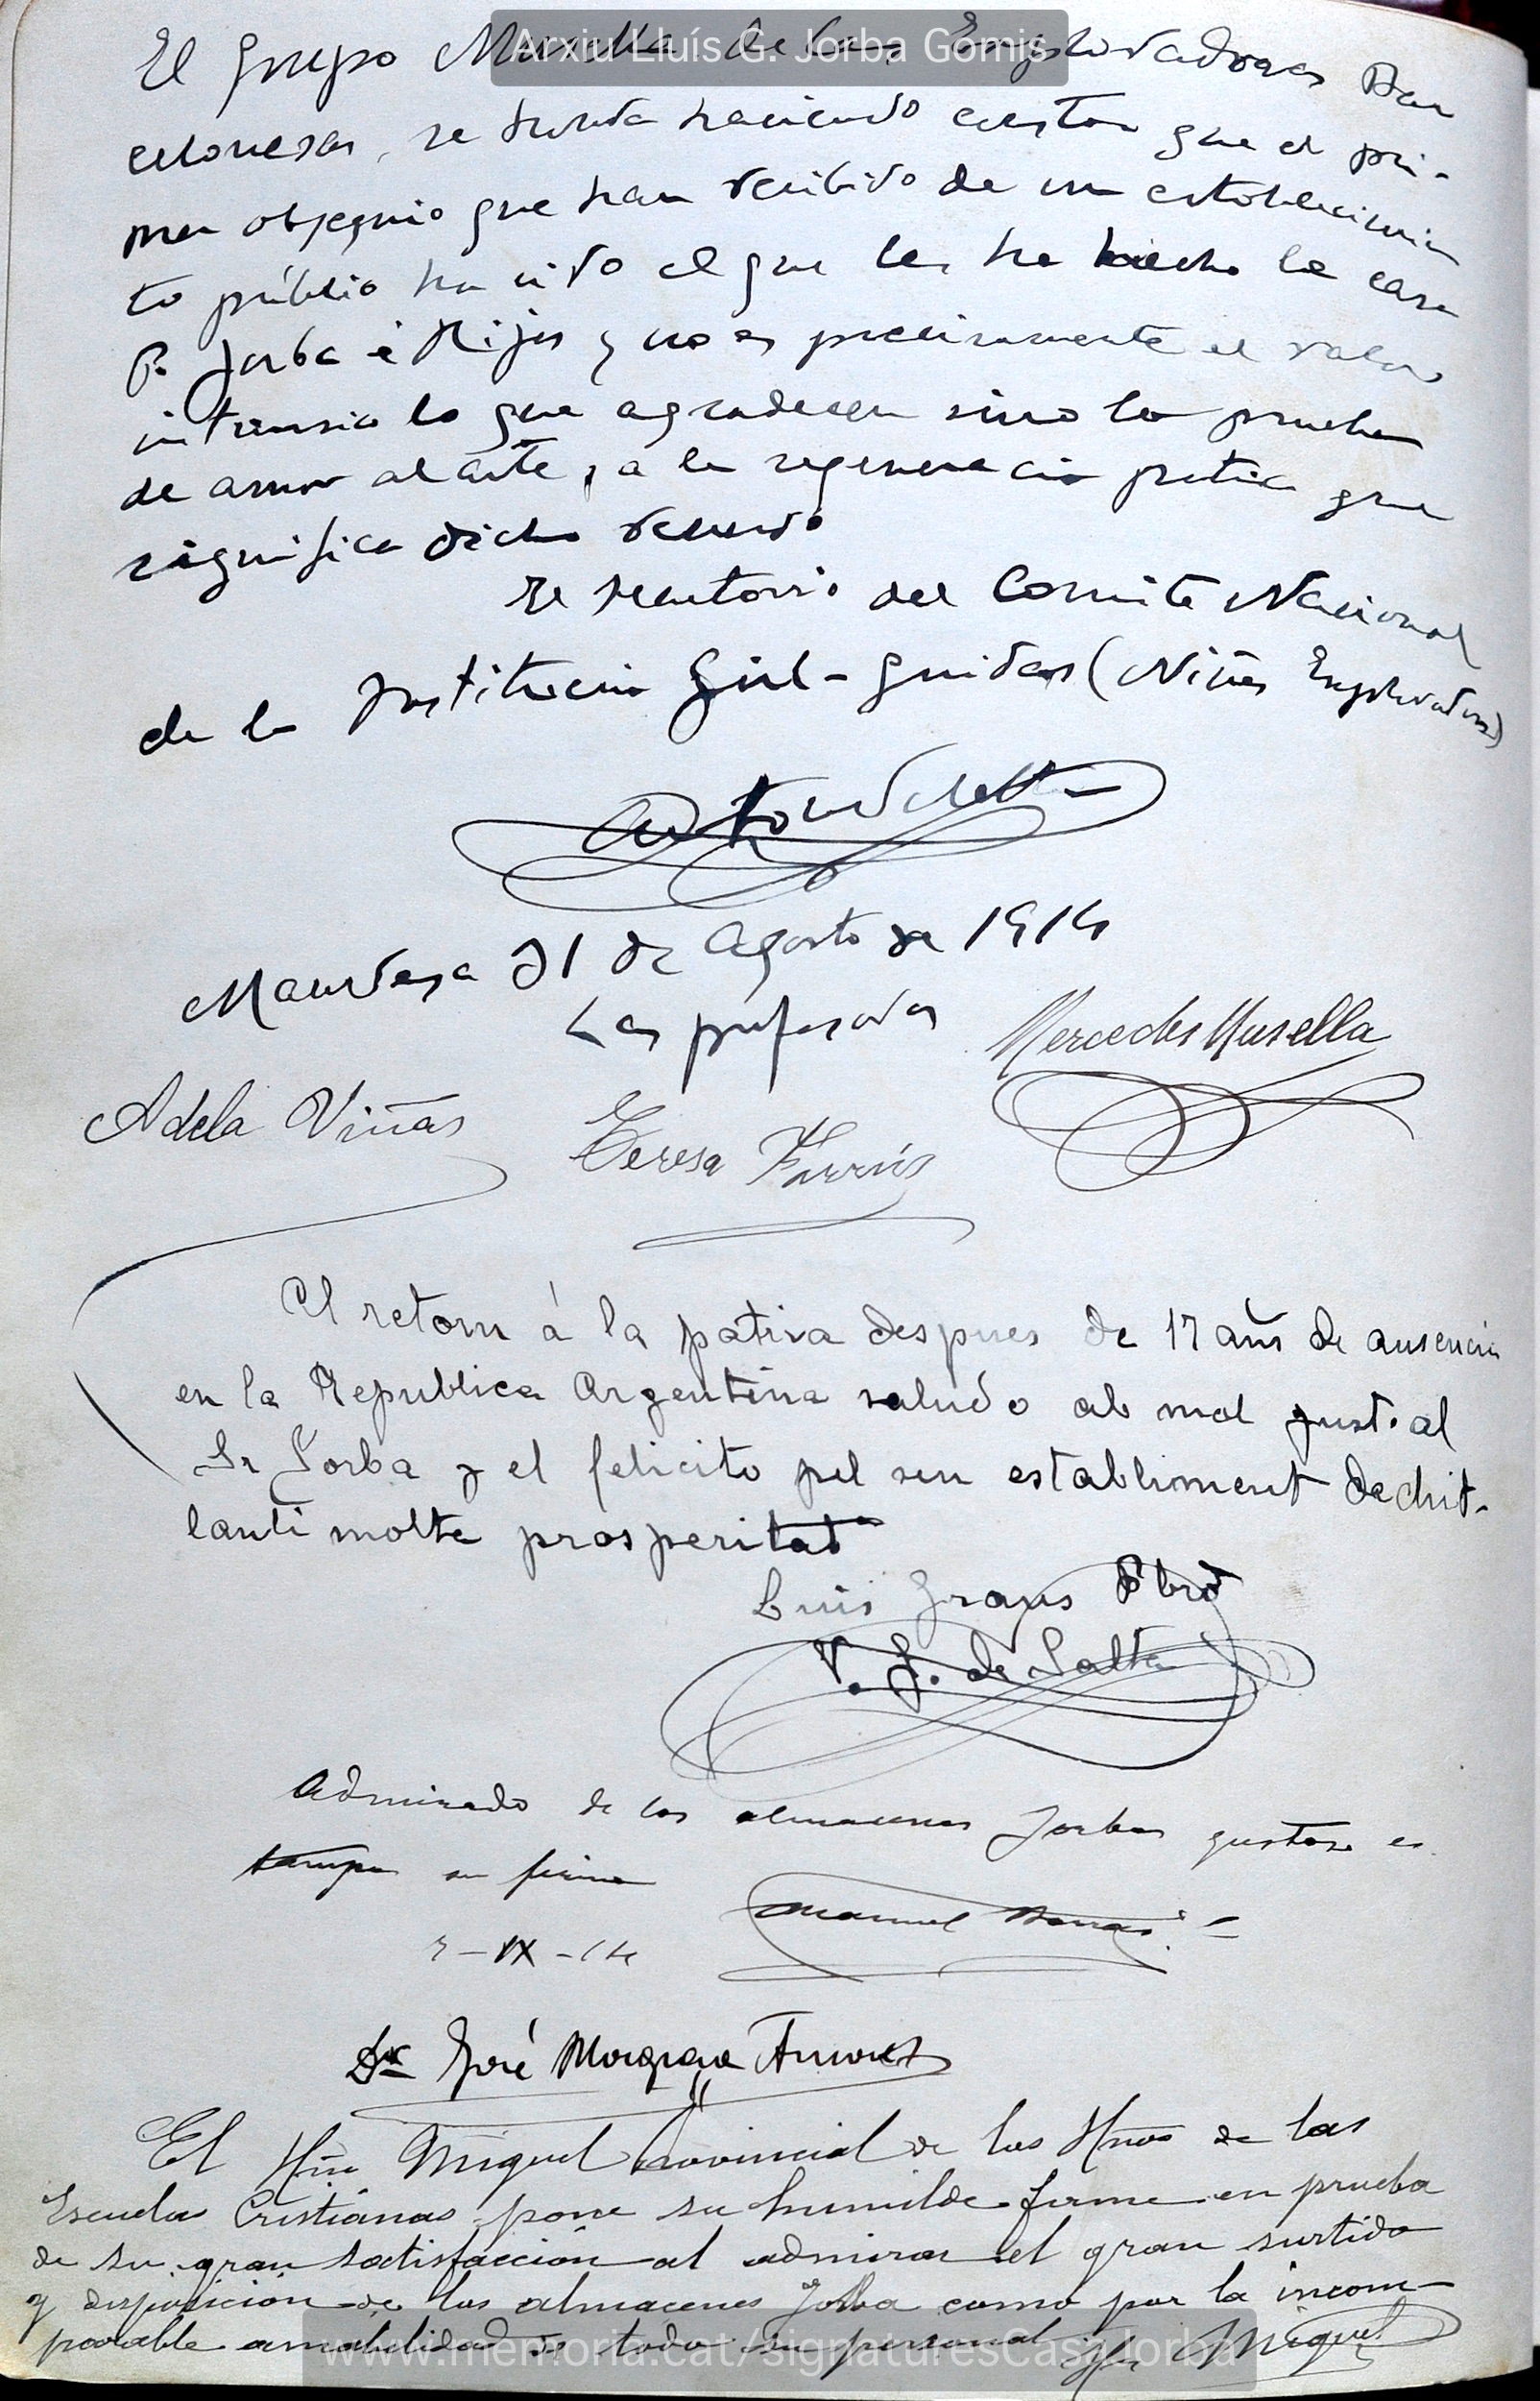 Arxiu Lluís G. Jorba Gomis
El Grupo Musella de las Exploradoras Bar
celonesas, se honra haciendo constar que el pri-
mer obsequio que han recibido de un establecimien
to público ha sido el que les ha hecho la casa
P. Jorba é Hijos y no es precisamente el valor
intrinsico lo que agradecen sino la prueba
de amor al arte, a la regeneracio patria que
significa dicho recuerdo
El secretario del Comité Nacional
de la Institucion Girl-guidas (Niñas Exploradoras)
Manresa 31 de Agosto de 1914
Las profesoras
Mercedes Musella
Adela Viñas
Teresa
Al retorn á la patria despues de 17 añs de ausencia
en la Republica Argentina saludo ab mol gust al
Sr Jorba y el felicito pel seu establiment dechit-
lantli molta prosperitat
Luis Grans Pbro
V. G. de Salta
Admirado de los almacenes Jorba gustoso es
tampa su firma
Manuel
-IX-14
Dr José Moragas
El Hno Miguel Provincial de los Hnos de las
Escuelas Cristianas pone su humilde firma en prueba
de su gran satisfacción al admirar el gran surtido
y disposición de los almacenes Jorba como por la incom-
parable amabilidad de todo su personal Hno Miguel
www.memoria.cat/signaturesCasaJorba